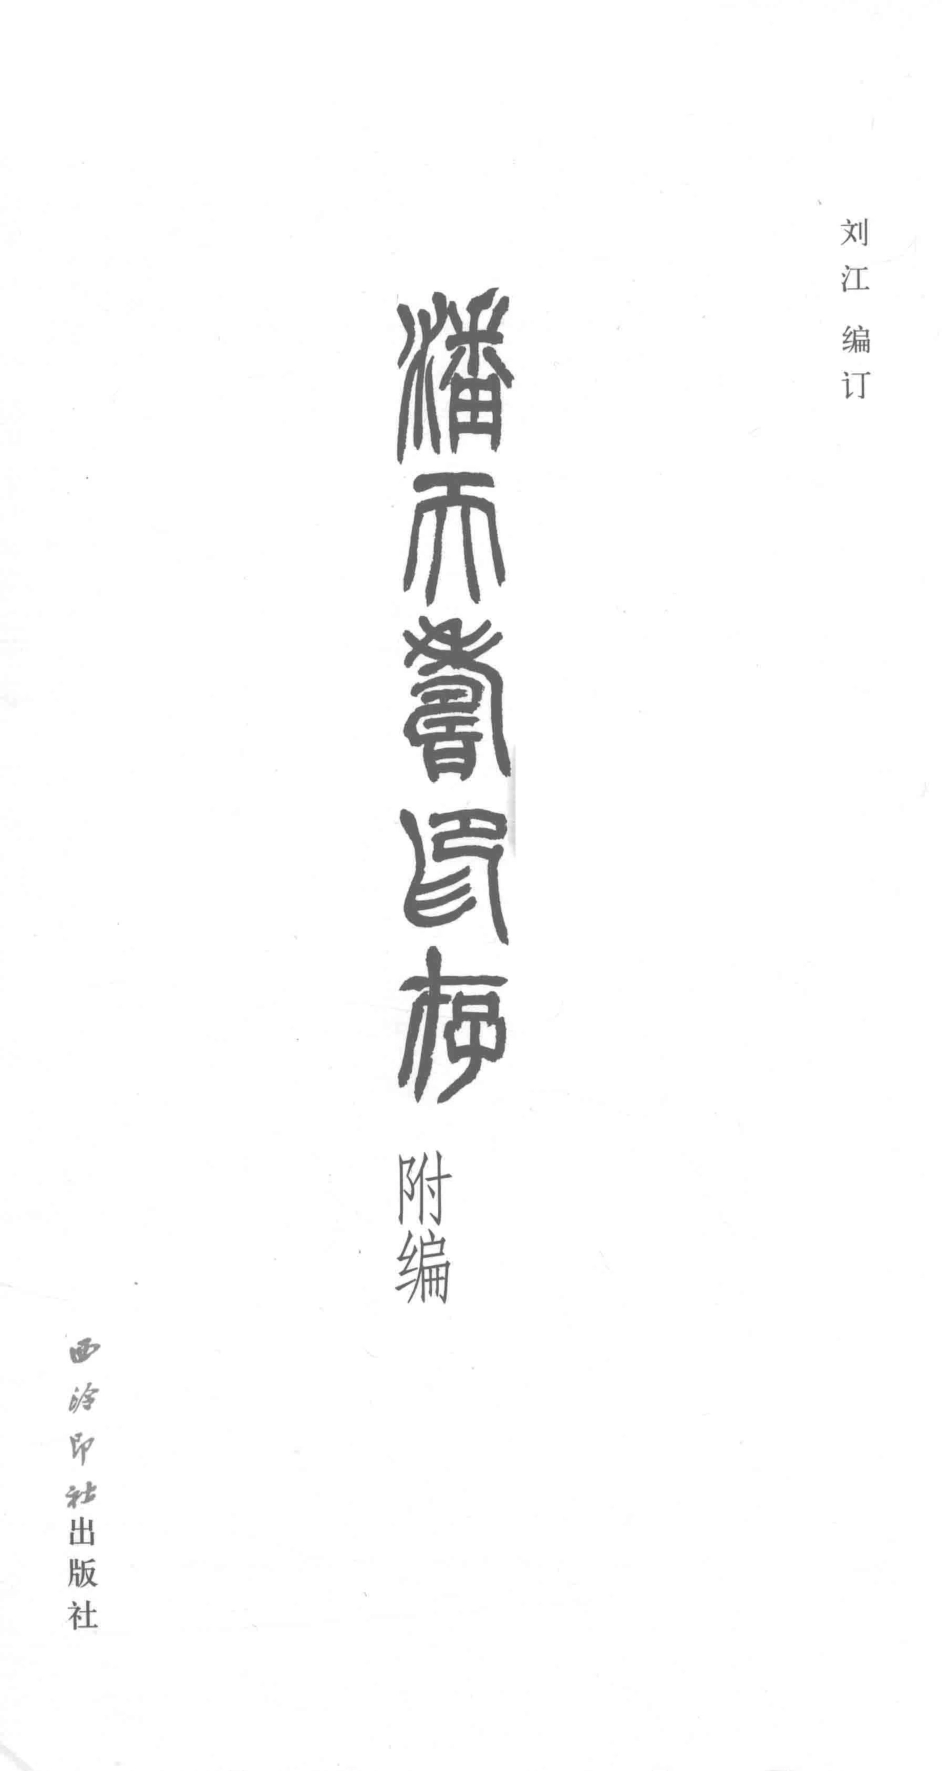 刘江 编订
潘天寿印存
附编
西泠印社出版社